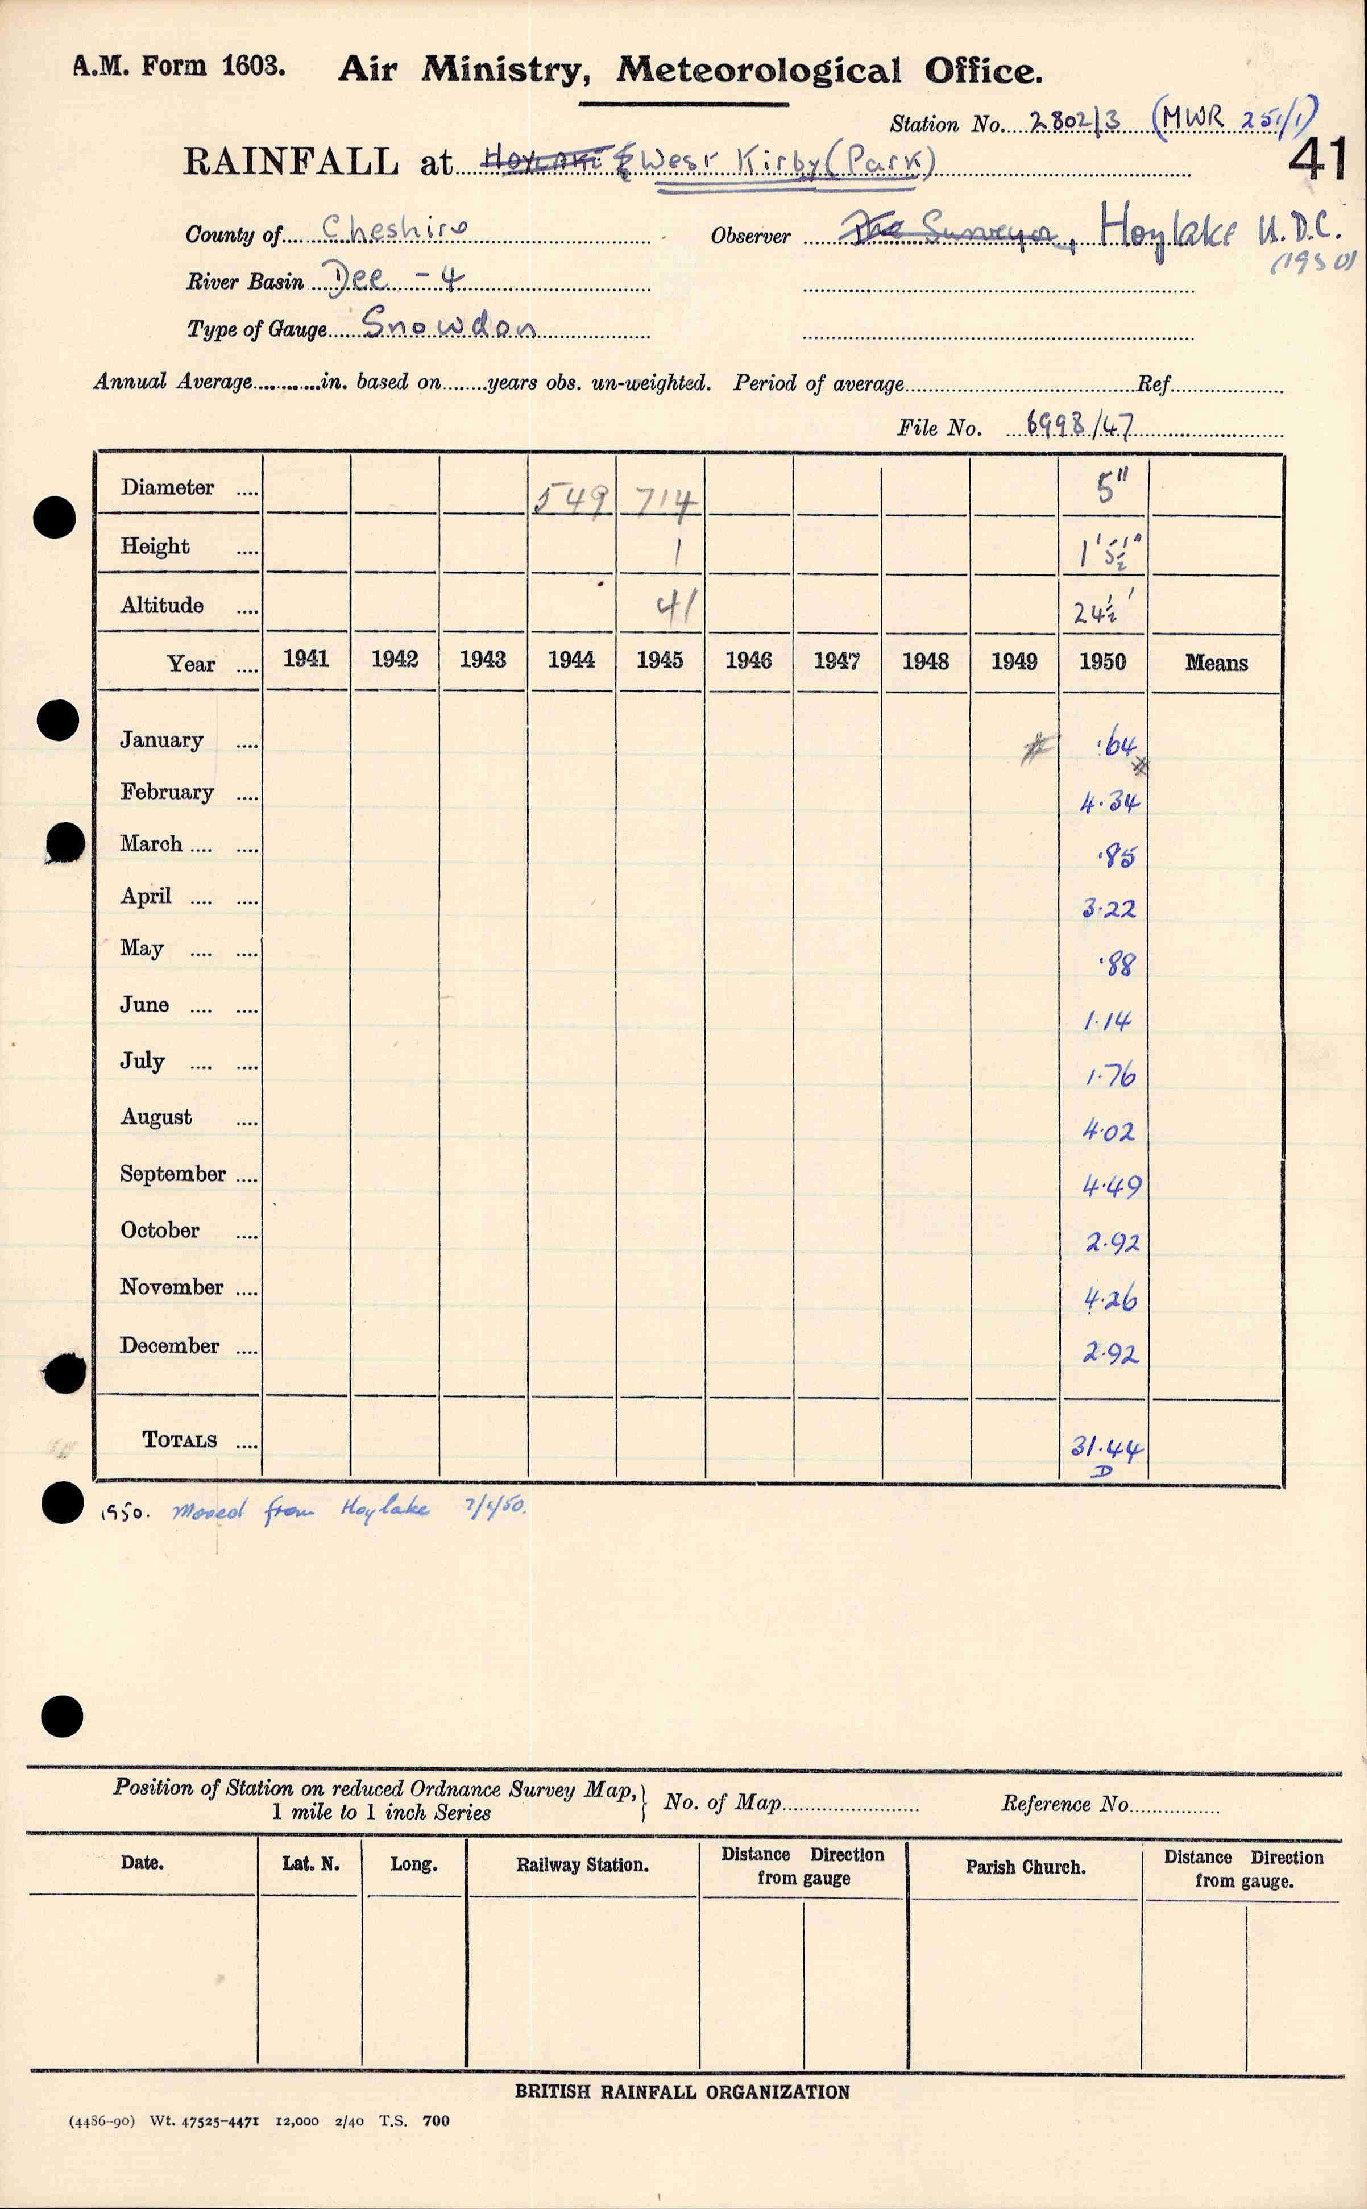 A.M. Form 1603. Air Ministry, Meteorological Office.
Station No. 2802/3 (MWR 251/1)
41
RAINFALL at Hoylake & West Kirby (Park)
County of Cheshire Observer The Surveyor, Hoylake U.D.C.
(1950)
River Basin Dee - 4
Type of Gauge Snowdon
Annual Average in. based on years obs. un-weighted. Period of average Ref
File No. 6998/47
Diameter 549 714 5"
Height 1 1' 5½"
Altitude 41 24½'
Year 1941 1942 1943 1944 1945 1946 1947 1948 1949 1950 Means
January # .64 #
February 4.34
March .85
April 3.22
May .88
June 1.14
July 1.76
August 4.02
September 4.49
October 2.92
November 4.26
December 2.92
TOTALS 31.44
D
1950. Moved from Hoylake
Position of Station on reduced Ordnance Survey Map, } No. of Map Reference No.
1 mile to 1 inch Series
Date. Lat. N. Long. Railway Station. Distance Direction from gauge Parish Church. Distance Direction from gauge.
BRITISH RAINFALL ORGANIZATION
(4486-90) Wt. 47525-4471 12,000 2/40 T.S. 700